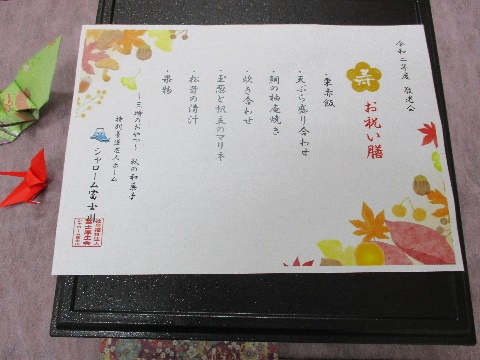 令和二年度 敬老会
寿
お祝い膳
・栗赤飯
・天ぷら盛り合わせ
・鯛の柚庵焼き
・炊き合わせ
・玉葱と帆立のマリネ
・松茸の清汁
・果物
～三時のおやつ～ 秋の和菓子
特別養護老人ホーム
シャローム富士川
社会福祉法人
富士厚生会